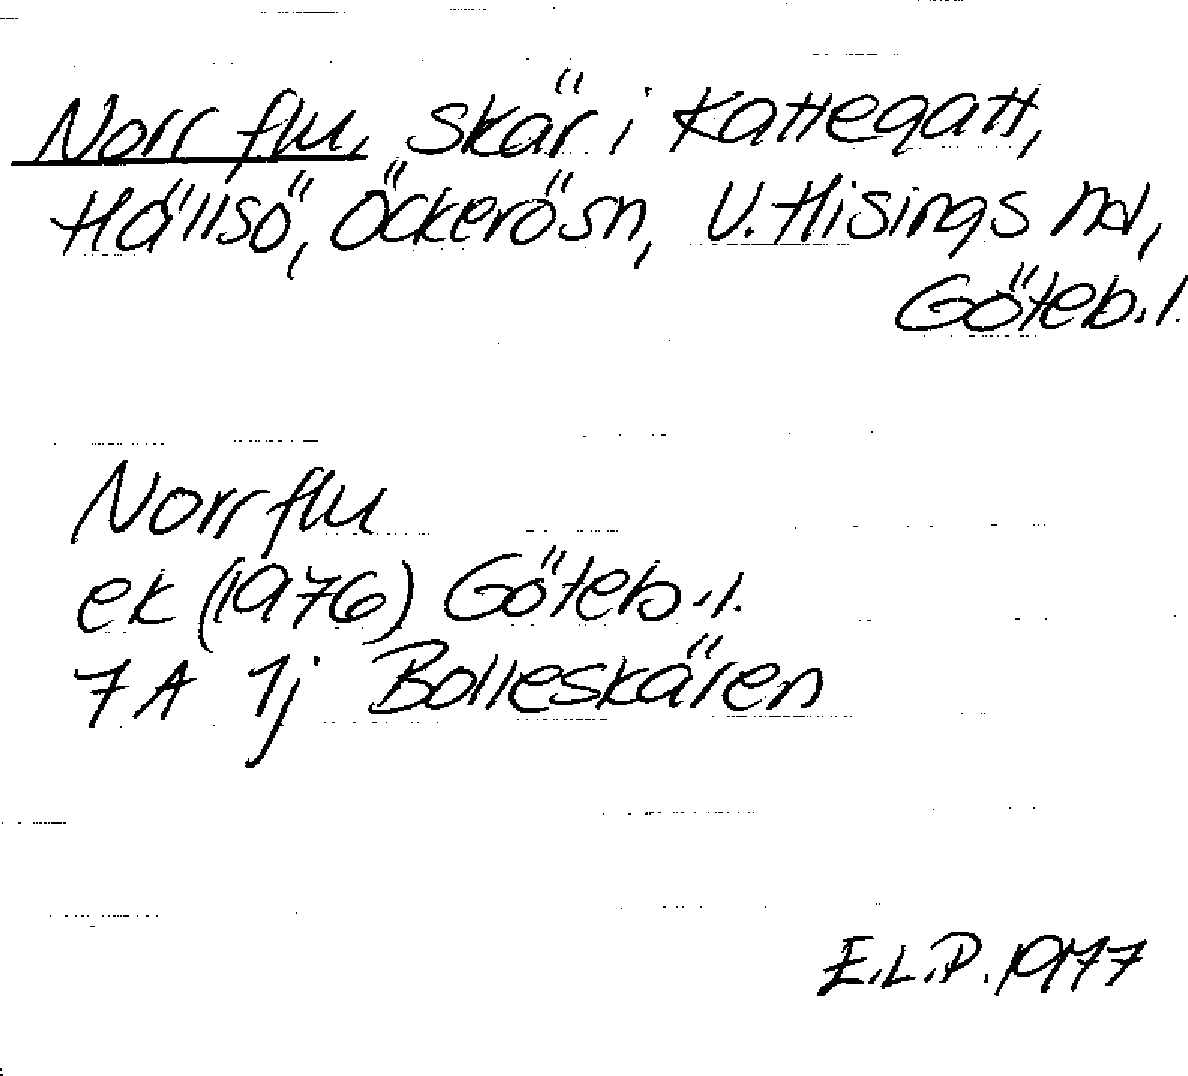 Norr flu, skär i Kattegatt,
Hällsö, Öckerö sn, V. Hisings hd,
Göteb. l.
Norr flu
ek (1976) Göteb. l.
7 A 1j Bolleskären
E.L.P. 1977